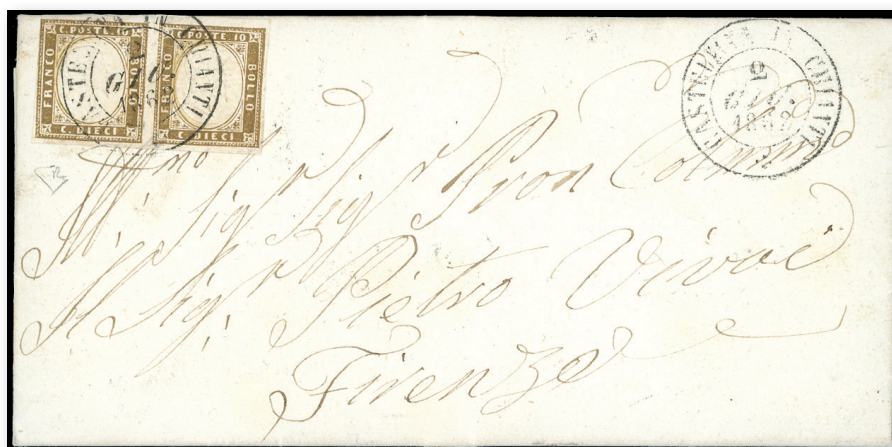 C. POSTE 10
FRANCO
BOLLO
C. DIECI
C. POSTE 10
FRANCO
BOLLO
C. DIECI
CASTELLINA IN CHIANTI
2
GIU.
1862
Ill.mo Sigr Sigr Pron Colmo
Il Sigr Pietro Vivai
Firenze